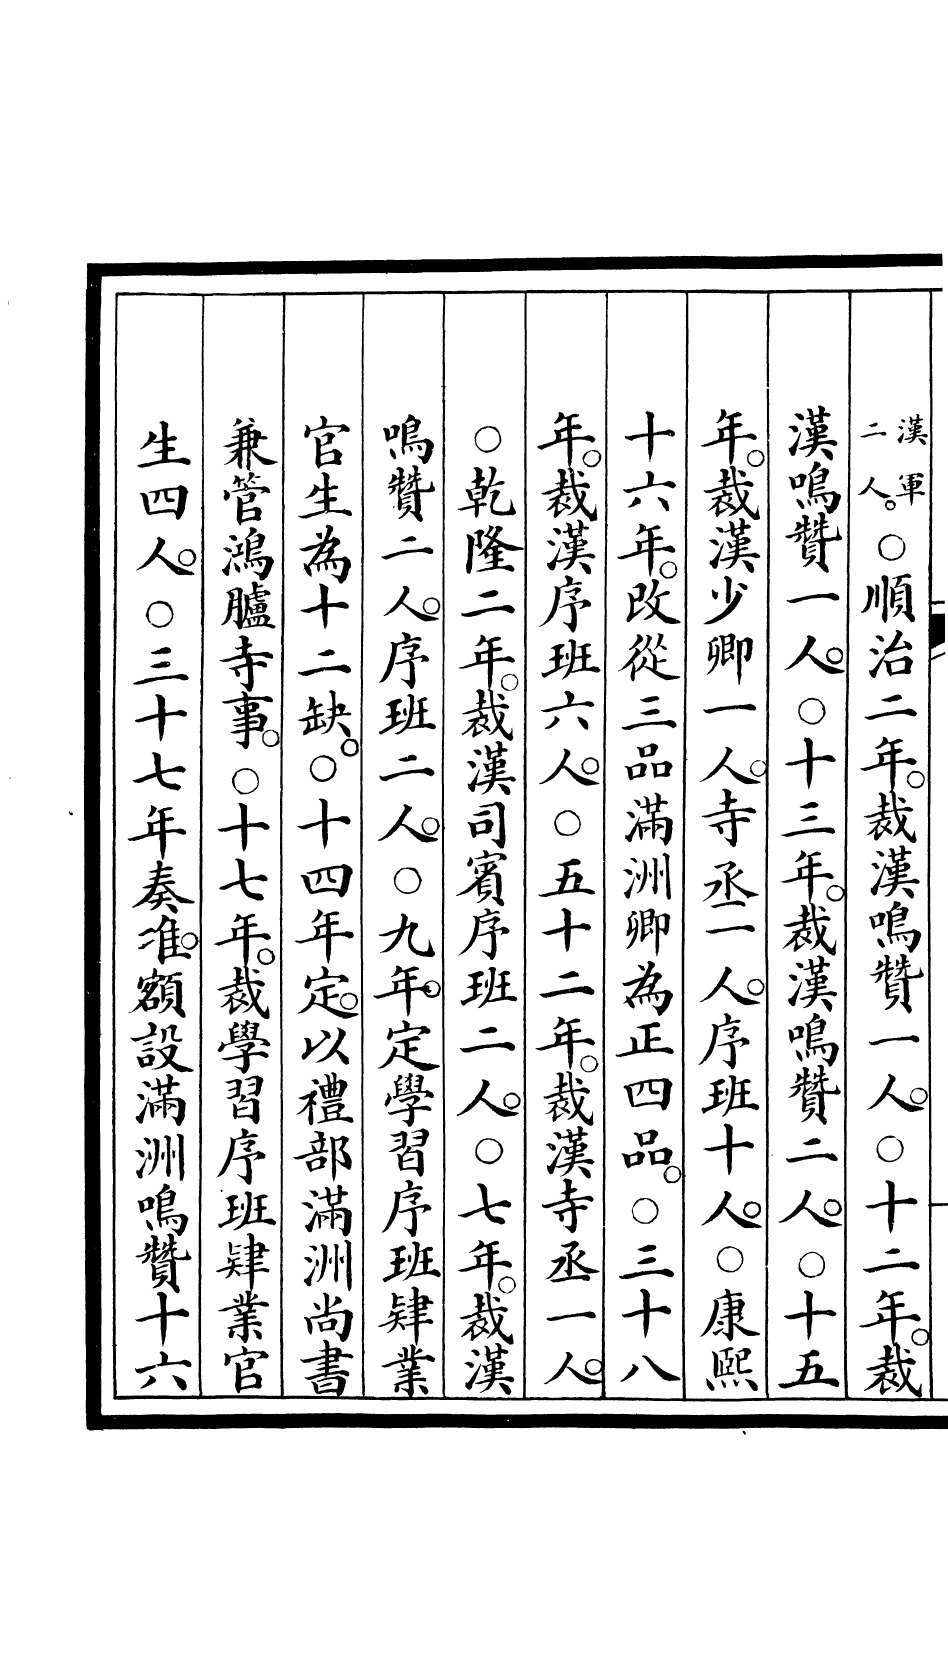 漢軍二人。○順治二年。裁漢鳴贊一人。○十二年。裁
漢鳴贊一人。○十三年。裁漢鳴贊二人。○十五
年。裁漢少卿一人。寺丞一人。序班十人。○康熙
十六年。改從三品滿洲卿為正四品。○三十八
年。裁漢序班六人。○五十二年。裁漢寺丞一人。
○乾隆二年。裁漢司賓序班二人。○七年。裁漢
鳴贊二人。序班二人。○九年。定學習序班肄業
官生為十二缺。○十四年定。以禮部滿洲尚書
兼管鴻臚寺事。○十七年。裁學習序班肄業官
生四人。○三十七年奏准。額設滿洲鳴贊十六